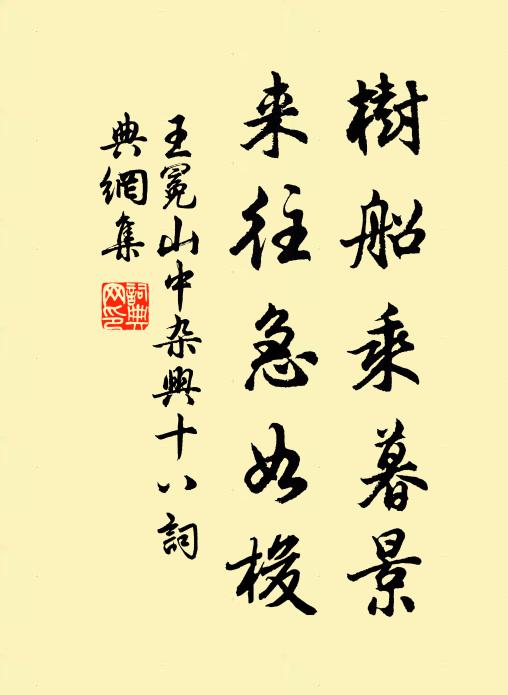 樹船乘暮景
来往急如梭
王冕山中杂興十八詞
典網集
詞典網印